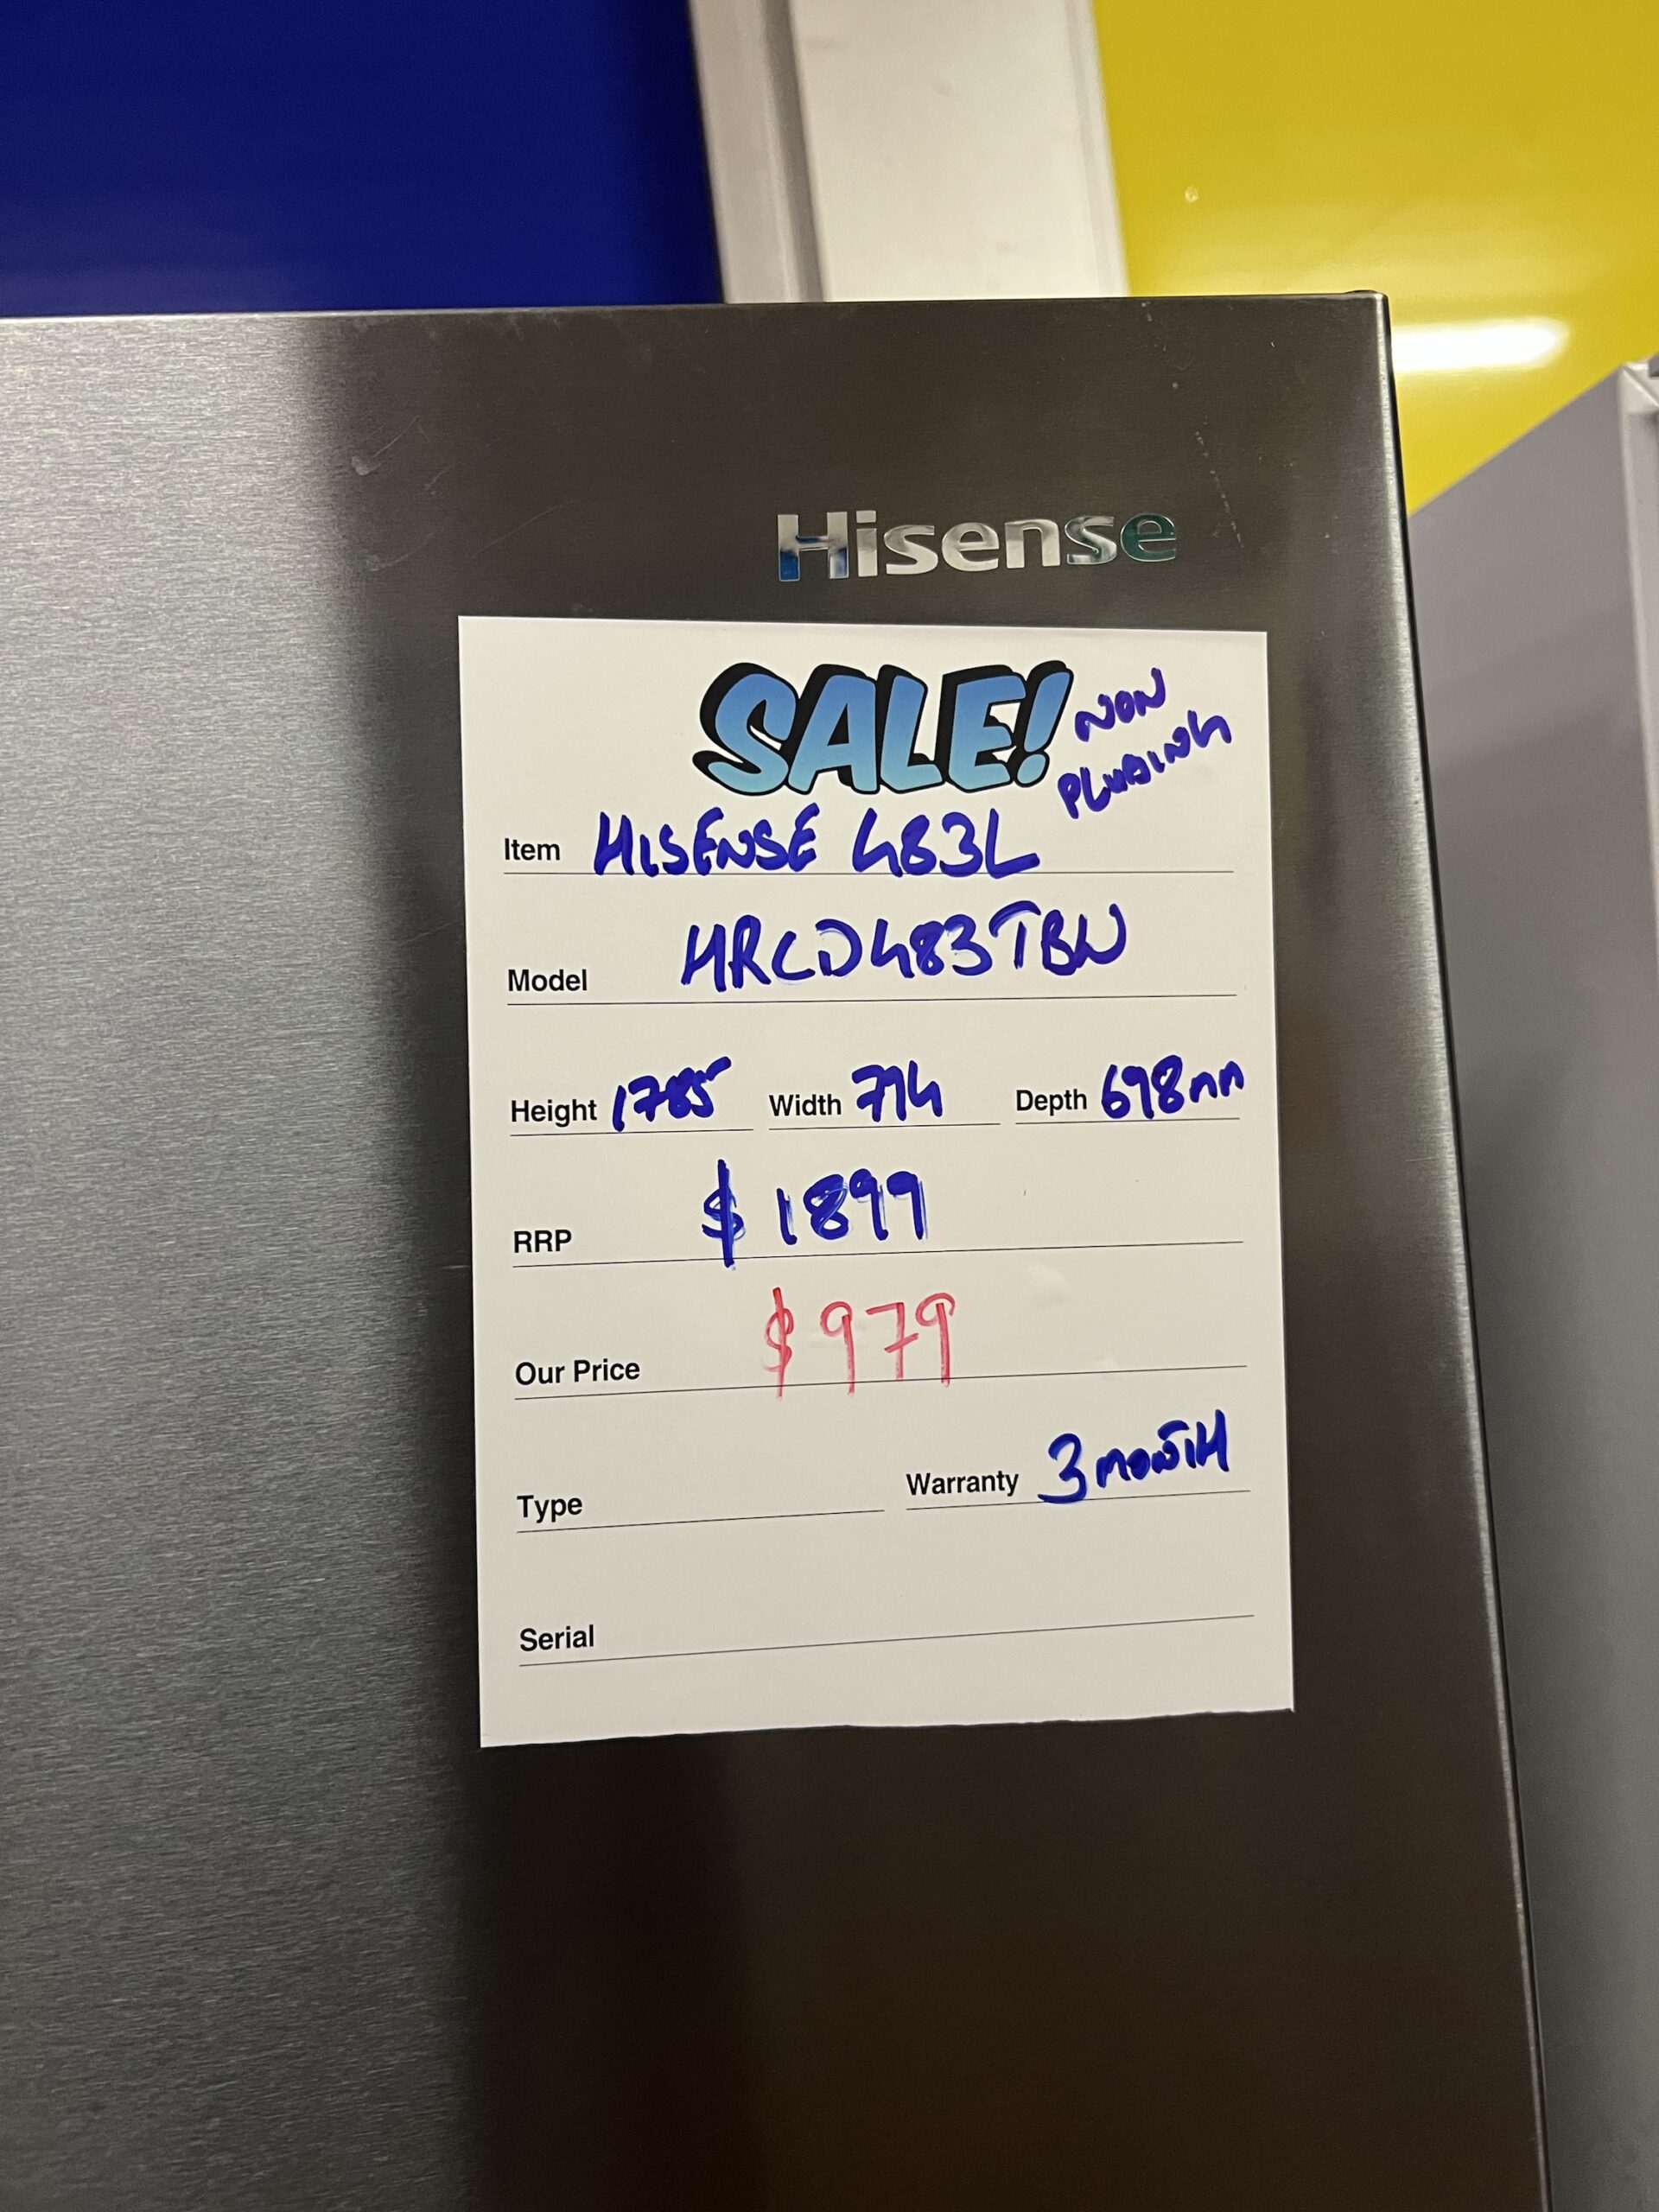 Hisense
SALE!
NON
PLUBING
Item HISENSE 483L
Model HRCD483TBW
Height 1785 Width 714 Depth 698mm
RRP $1899
Our Price $979
Type Warranty 3 MONTH
Serial